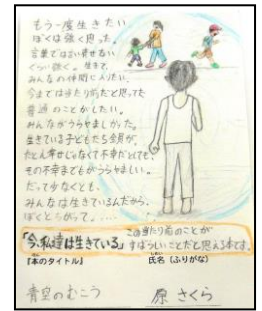 もう一度生きたい
ぼくは強く思った。
言葉では言い表せない
ぐらい強く。生きて、
みんなの仲間に入りたい。
今までは当たり前だと思ってた
普通のことがしたい。
みんながうらやましかった。
生きている子どもたち全員が、
たとえ幸せじゃなくて不幸だとしても、
その不幸までもがうらやましい。
だって少なくとも、
みんなは生きているんだから。
ぼくとちがって。・・・
「今、私達は生きている」この当たり前のことが
すばらしいことだと思える本です。
『本のタイトル』 氏名(ふりがな)
青空のむこう 原 さくら